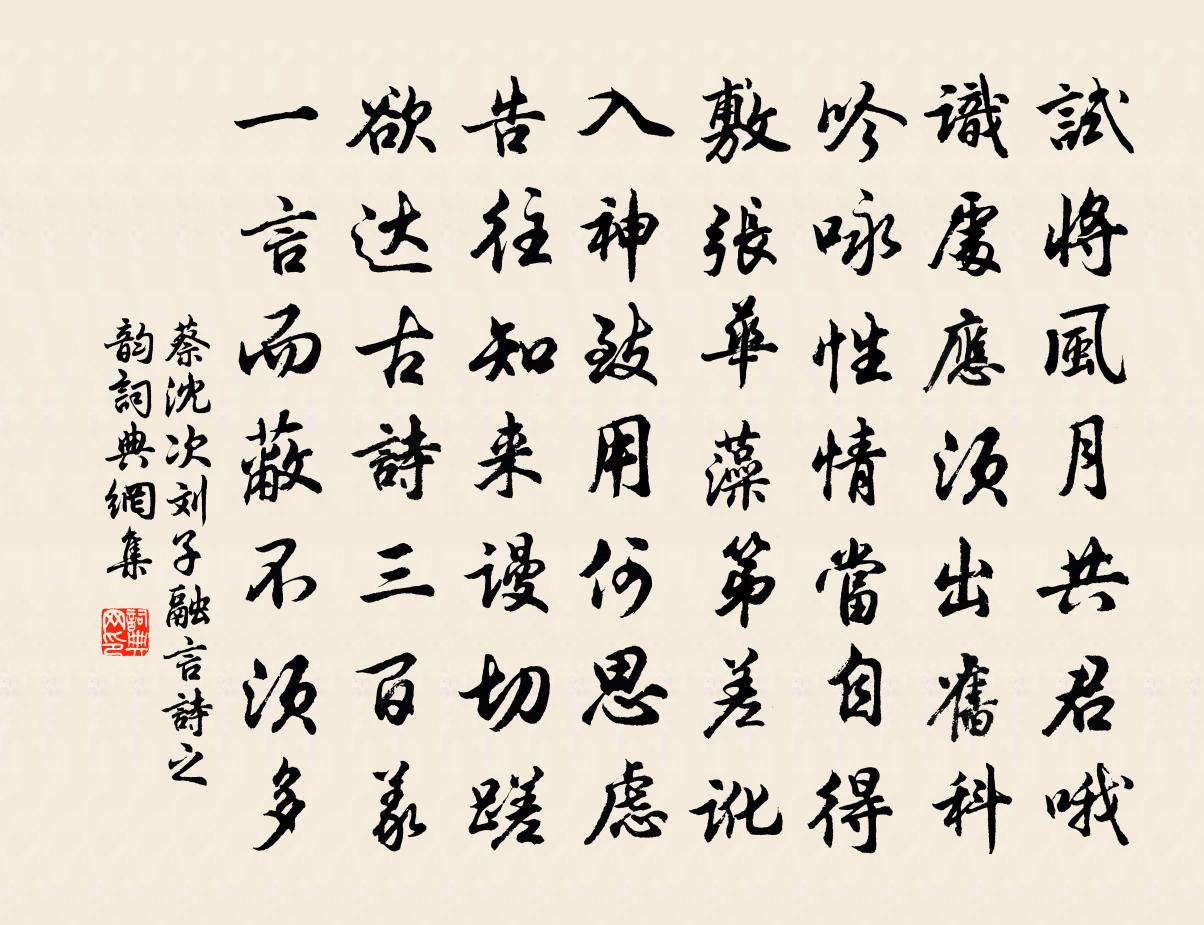 試將風月共君哦
識處應須出舊科
吟咏性情當自得
敷張華藻第差訛
入神致用何思慮
告往知来謾切蹉
欲达古詩三百義
一言而蔽不須多
蔡沈次刘子融言詩之
韵詞典網集
詞典网印